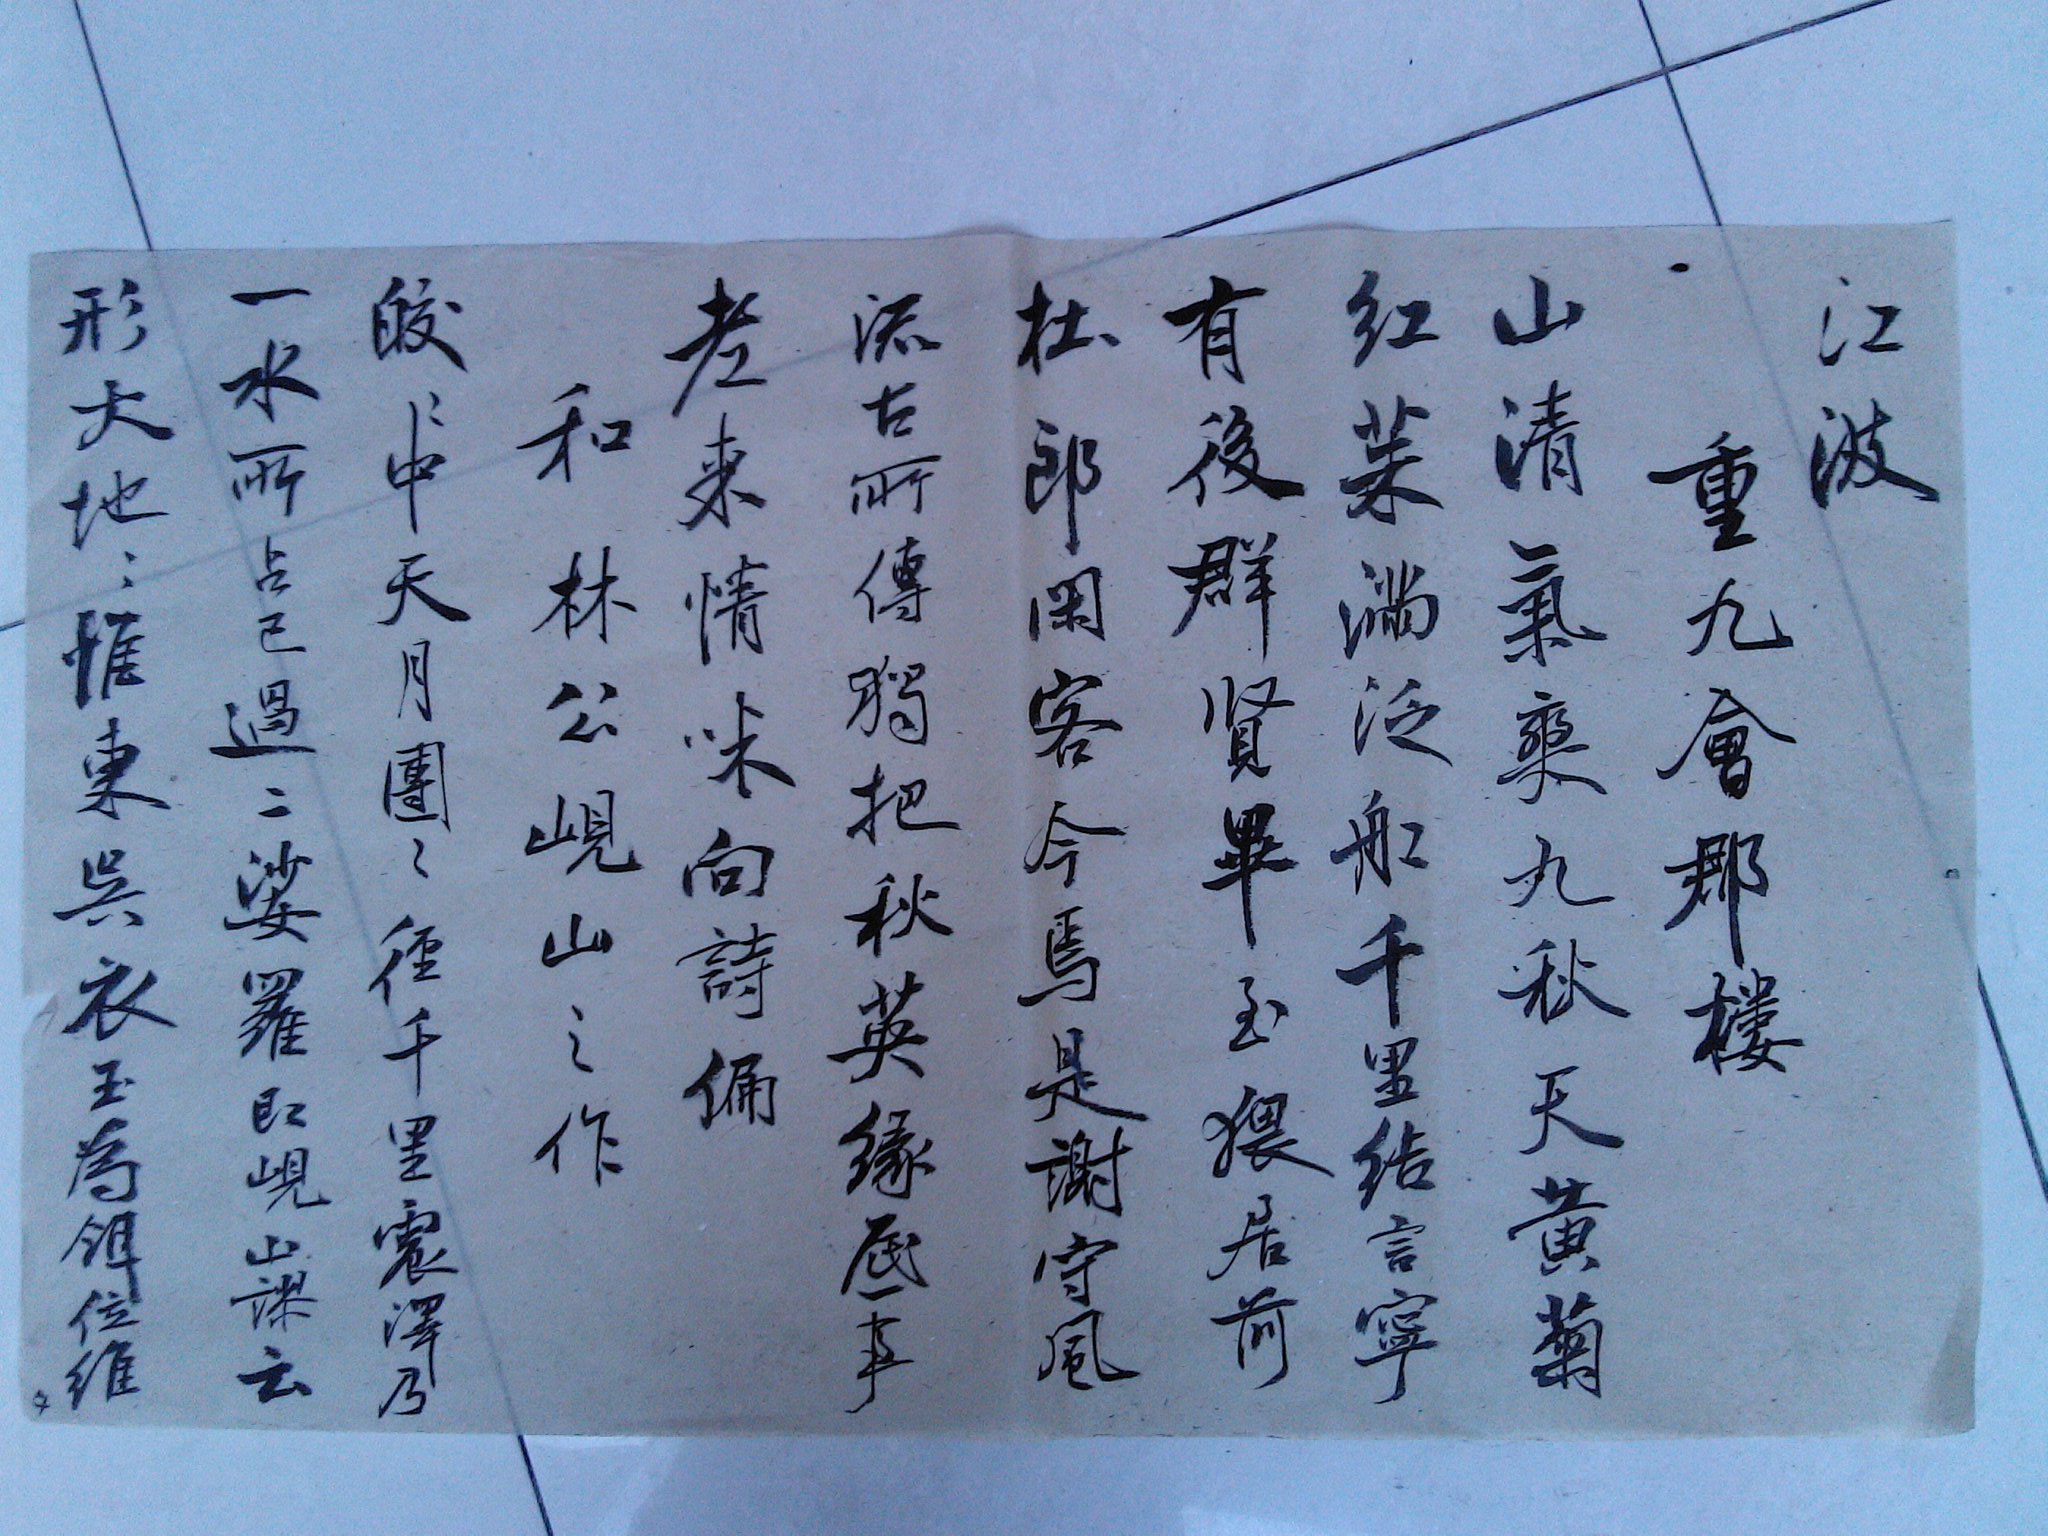 江波
重九會郡樓
山清氣爽九秋天黄菊
红茱滿泛船千里结言寧
有後群賢畢至猥居前
杜郎闲客今焉是謝守風
流古所傳獨把秋英緣底事
老来情味向詩偏
和林公峴山之作
皎〻中天月團〻徑千里震澤乃
一水所占已過二娑羅即峴山謬云
形大地〻惟東吴衣玉為餌位維